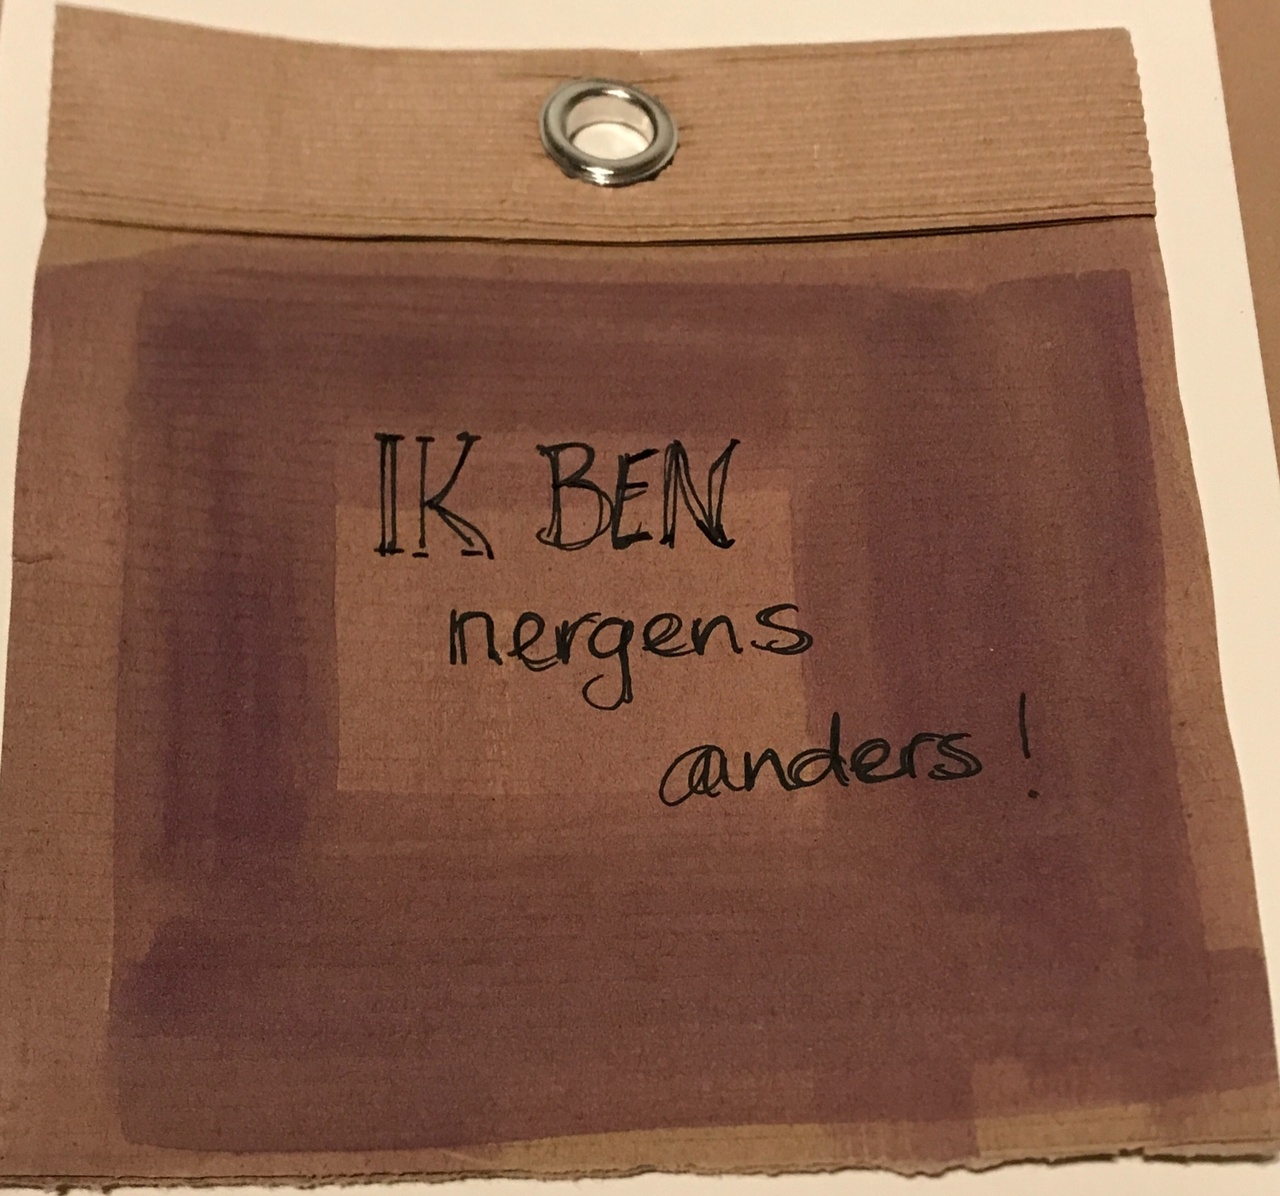 IK BEN
nergens
anders!